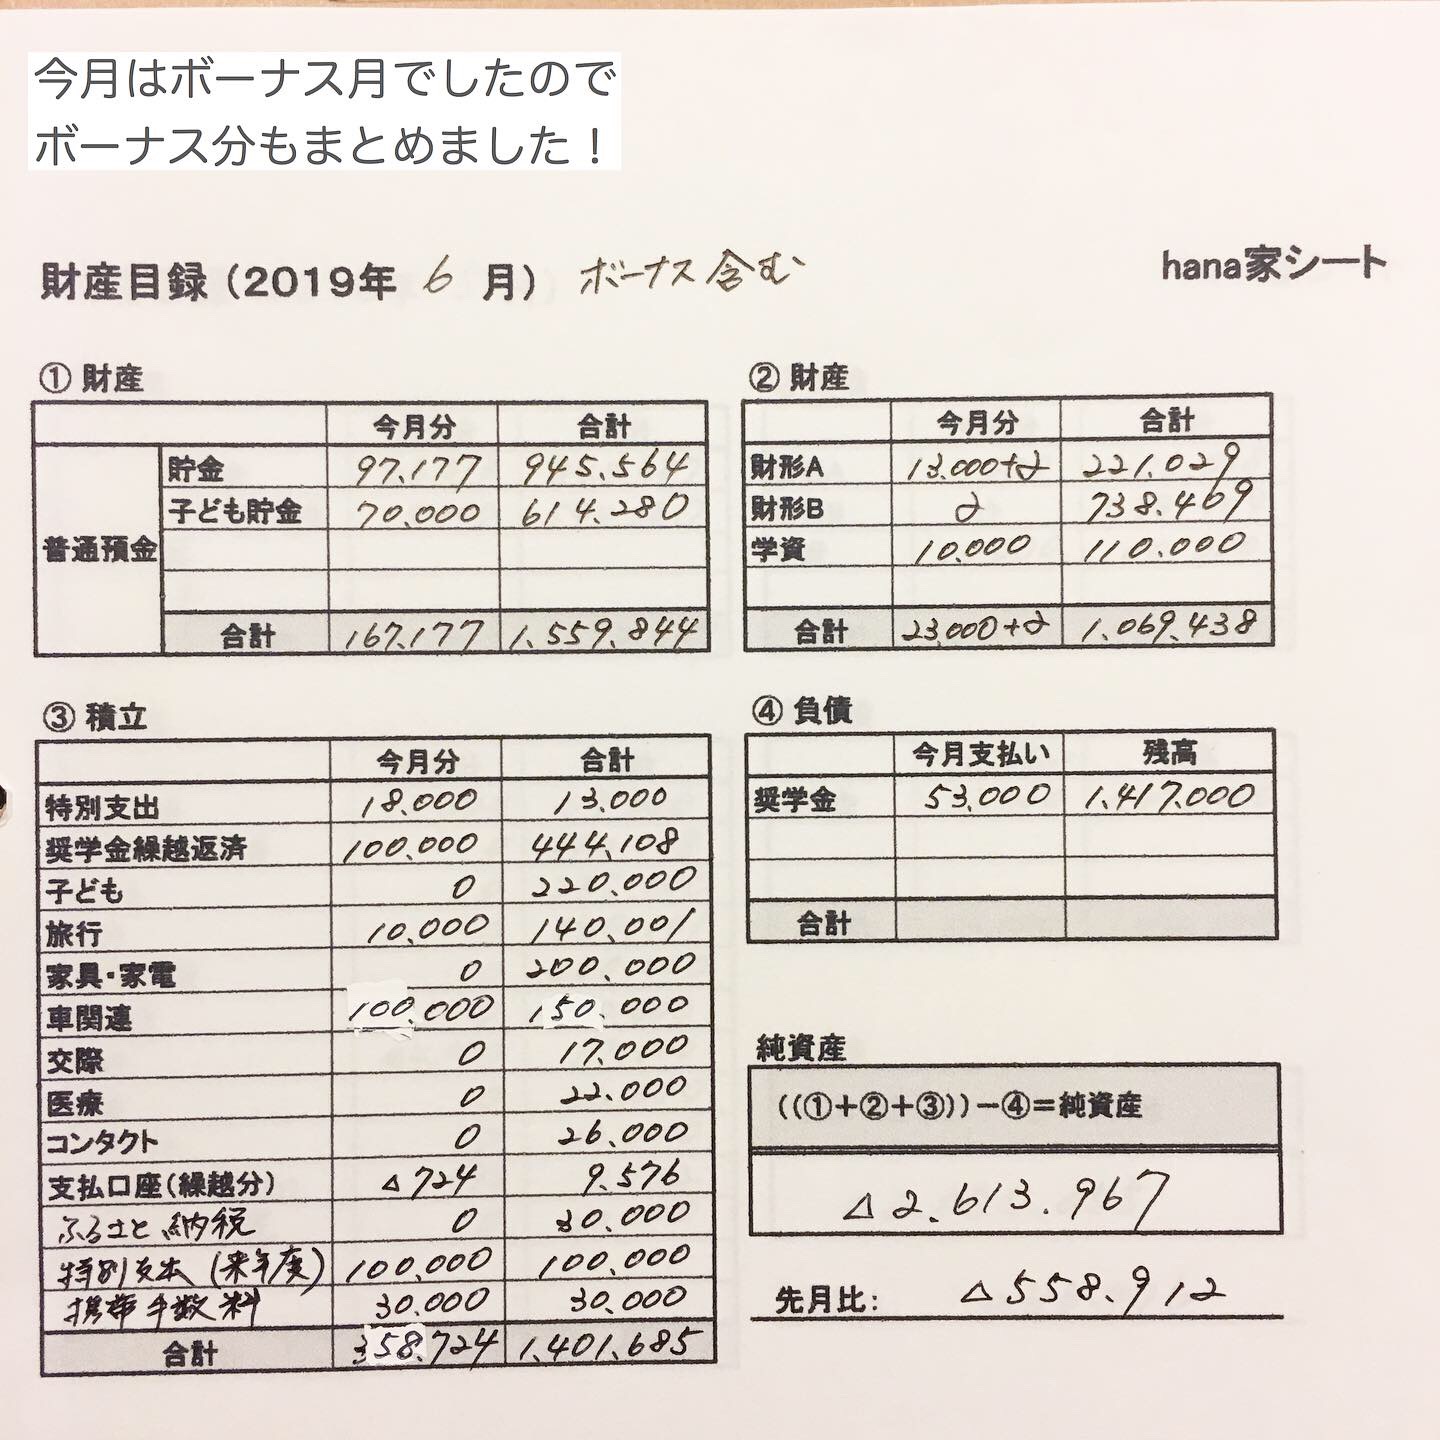 今月はボーナス月でしたので
ボーナス分もまとめました！
財産目録（2019年 6 月） ボーナス含む
hana家シート
① 財産
今月分 合計
普通預金
貯金 97.177 945.564
子ども貯金 70.000 614.280
合計 167.177 1.559.844
② 財産
今月分 合計
財形A 13.000+α 221.029
財形B α 738.409
学資 10.000 110.000
合計 23.000+α 1.069.438
③ 積立
今月分 合計
特別支出 18.000 13.000
奨学金繰越返済 100.000 444.108
子ども 0 220.000
旅行 10.000 140.001
家具・家電 0 200.000
車関連 100.000 150.000
交際 0 17.000
医療 0 22.000
コンタクト 0 26.000
支払口座（繰越分） △724 9.576
ふるさと納税 0 30.000
特別支出（来年度） 100.000 100.000
携帯手数料 30.000 30.000
合計 358.724 1.401.685
④ 負債
今月支払い 残高
奨学金 53.000 1.417.000
合計
純資産
（（①＋②＋③））－④＝純資産
△2.613.967
先月比： △558.912